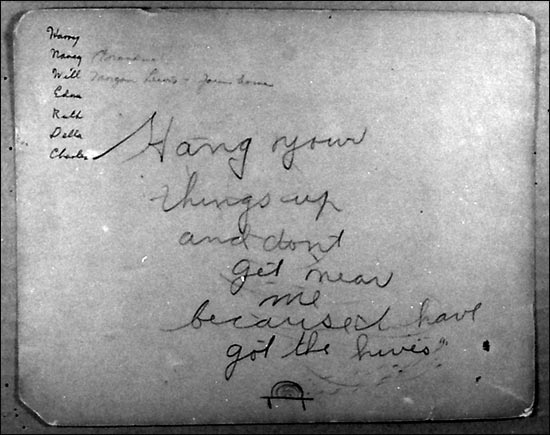 Harry
Nancy
Will Morgan Lewis
Edna
Ruth
Della
Charles
Hang your
things up
and dont
get near
me
because I have
got the hives"